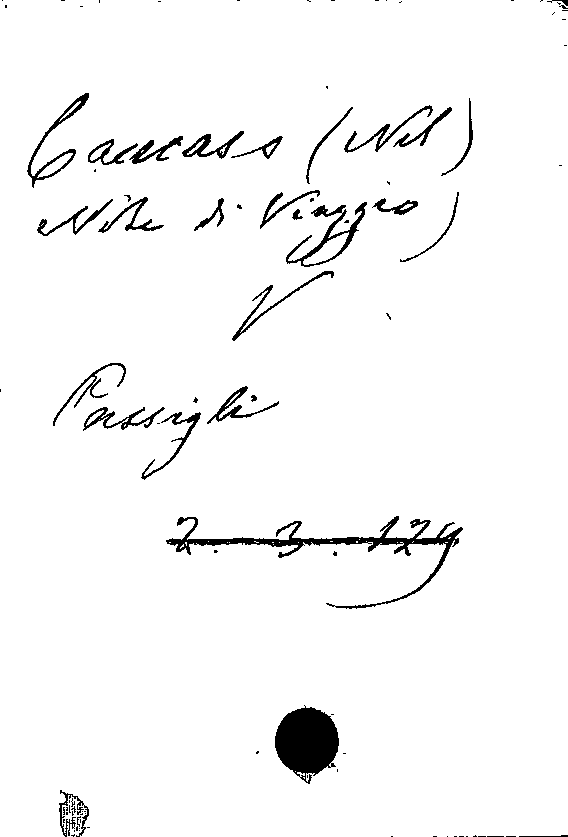 Caucaso (Nel)
Note di Viaggio)
V
Passigli
2. 3. 129